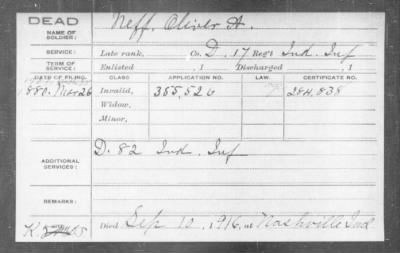 DEAD
NAME OF SOLDIER: Neff, Oliver A.
SERVICE: Late rank, Co. D, 17 Reg't Ind. Inf
TERM OF SERVICE: Enlisted , 1 Discharged , 1
DATE OF FILING. CLASS. APPLICATION NO. LAW. CERTIFICATE NO.
1880. Mar 26 Invalid, 355,526 284,838
Widow,
Minor,
ADDITIONAL SERVICES: D. 82 Ind. Inf
REMARKS:
Died Sep 12, 1916, at Nashville Ind